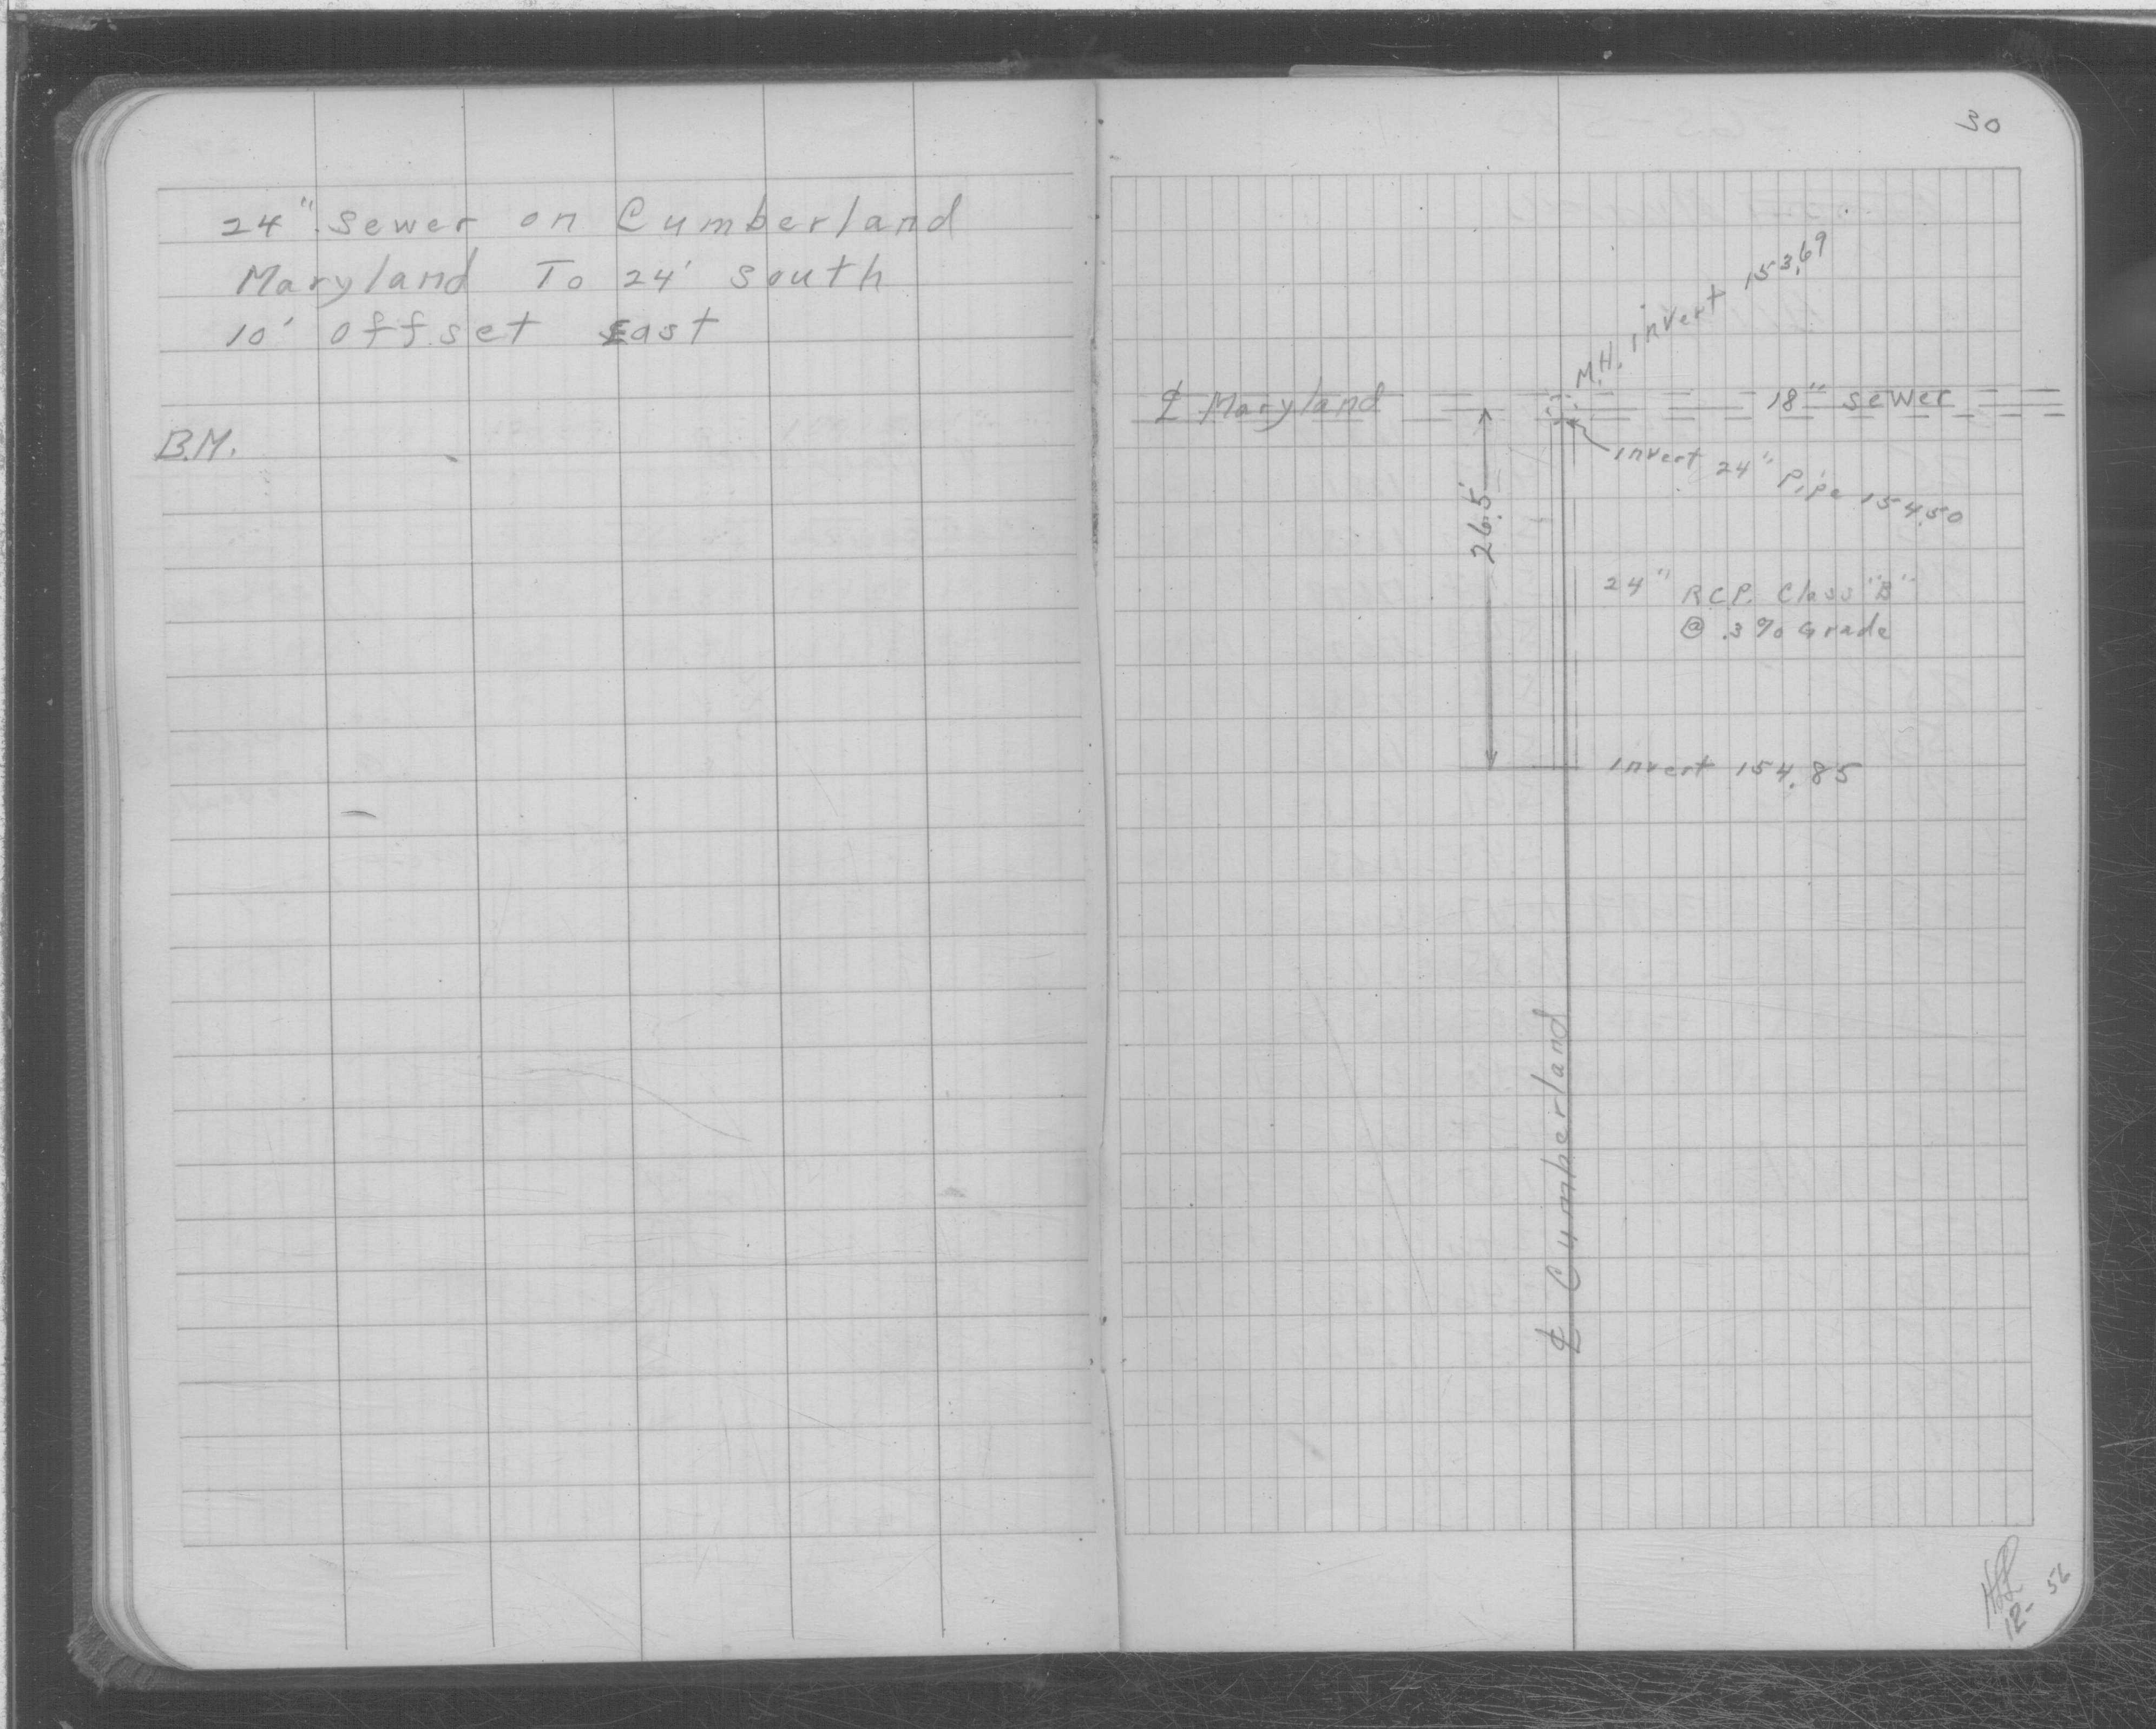 24" Sewer on Cumberland
Maryland To 24' South
10' offset East
B.M.
30
M.H. invert 153.69
℄ Maryland
18" sewer
invert 24" Pipe 154.50
26.5'
24" R.C.P. Class "B"
@ .3% Grade
invert 154.85
℄ Cumberland
12- 56